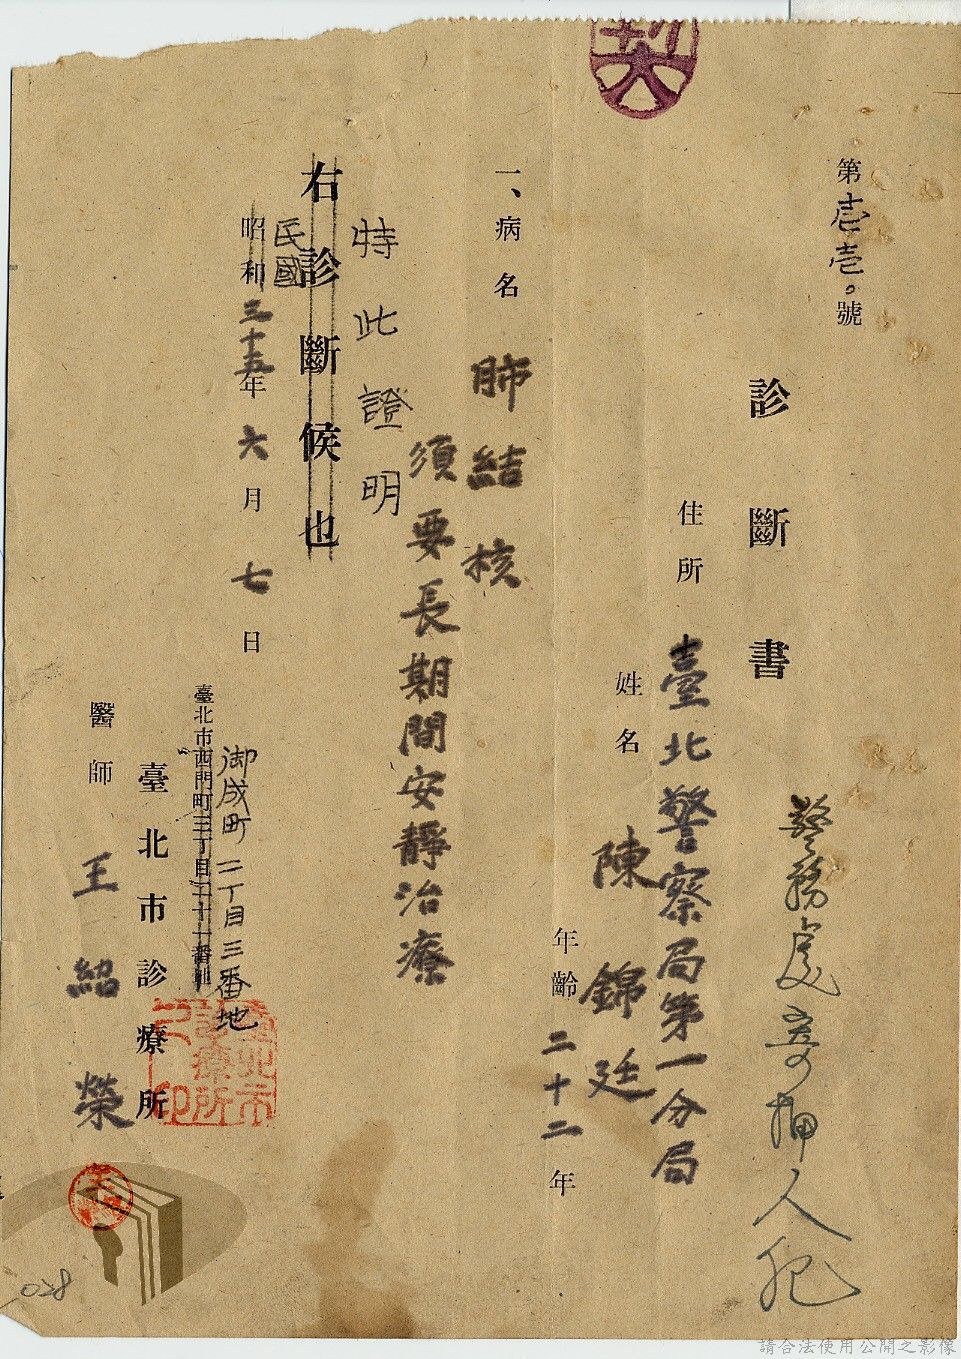 第壱壱〇號
診斷書
警務處寄押人犯
住所 臺北警察局第一分局
姓名 陳錦廷
年齡 二十二年
一、病名 肺結核
須要長期間安靜治療
特此證明
右診斷候也
民國
昭和三十五年六月七日
御成町二丁目三番地
臺北市西門町三丁目二十一番地
臺北市診療所
臺北市診療所之印
醫師 王紹榮
028
請合法使用公開之影像